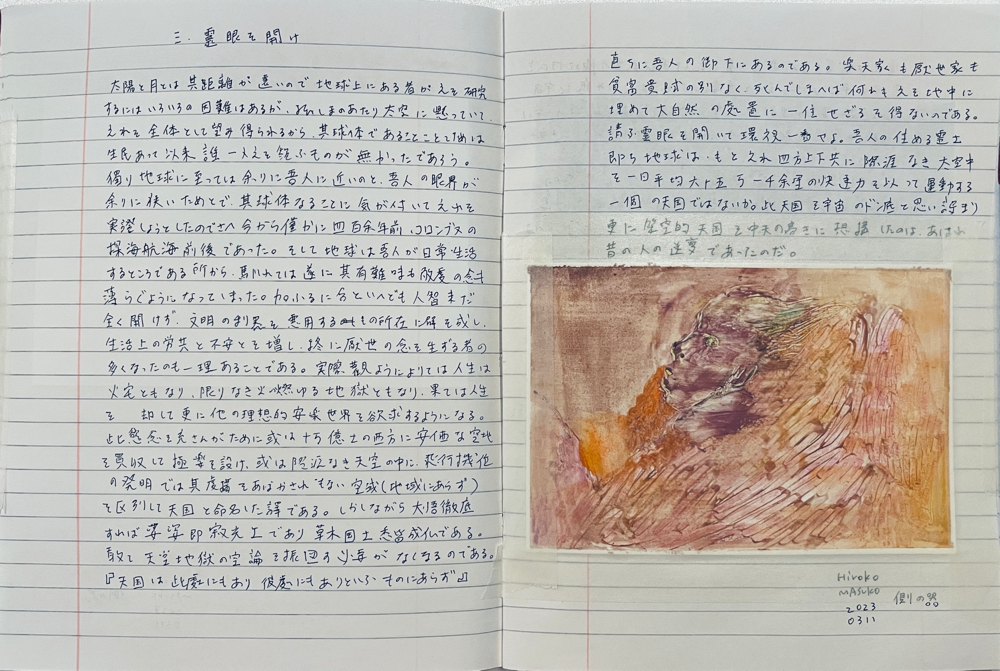 三. 靈眼を開け
太陽と月とは其距離が遠いので地球上にある者がえを研究
するにはいろいろの困難はあるが、まのあたり大空に懸っていて、
えれを全体として望み得られるから、其球体であることとためは
生民あって以来誰一人えを疑ふものが無かったであろう。
獨り地球に至っては余りに吾人に近いのと、吾人の眼界が
余りに狭いためとで、其球体なることに気が付いてえれを
実證しようとしたのでさへ今から僅かに四百余年前、コロンブスの
探海航海前後であった。そして地球は吾人が日常生活
するところである所から、馴れては遂に其有難味も敬虔の念も
薄らぐようになってしまった。加ふるに今といへども人智まだ
全く開けず、文明の利器を悪用するもの所在に群を成し、
生活上の労共と不安とを増し、終に厭世の念を生ずる者の
多くなったのも一理あることである。実際観ようによりては人生は
火宅ともなり、限りなき火燃ゆる地獄ともなり、果ては人生
を 却して更に他の理想的安楽世界を欲求するようになる。
此懸念を充さんがために或は十万億土の西方に安価な空地
を買収して極楽を設け、或は際涯なき天空の中に、飛行機位
の発明では其底器をあばかされない空域(地域にあらず)
を区別して天国と命名した譯である。しかしながら大悟徹底
すれば娑婆即寂光土であり草木国土悉皆成仏である。
敢て天堂地獄の空論を振回す必要がなくなるのである。
『天国は此處にもあり彼處にもありといふものにあらず』
直ちに吾人の御下にあるのである。楽天家も厭世家も
貧富受賦の別なく、死んでしまへば何れもえを地中に
埋めて大自然の処置に一任せざるを得ないのである。
請ふ靈眼を開いて環視一番せよ。吾人の住める靈土
即ち地球は、もとえれ四方上下共に際涯なき大空中
を一日平均六十五万一千余里の快速力を以って運動する
一個の天国ではないか。此天国を宇宙のドン底と思い誤まり
更に架空的天国を中天の高きに想描したのは、あはれ
昔の人の迷夢であったのだ。
Hiroko
MASUKO
2023 倒の器
0311